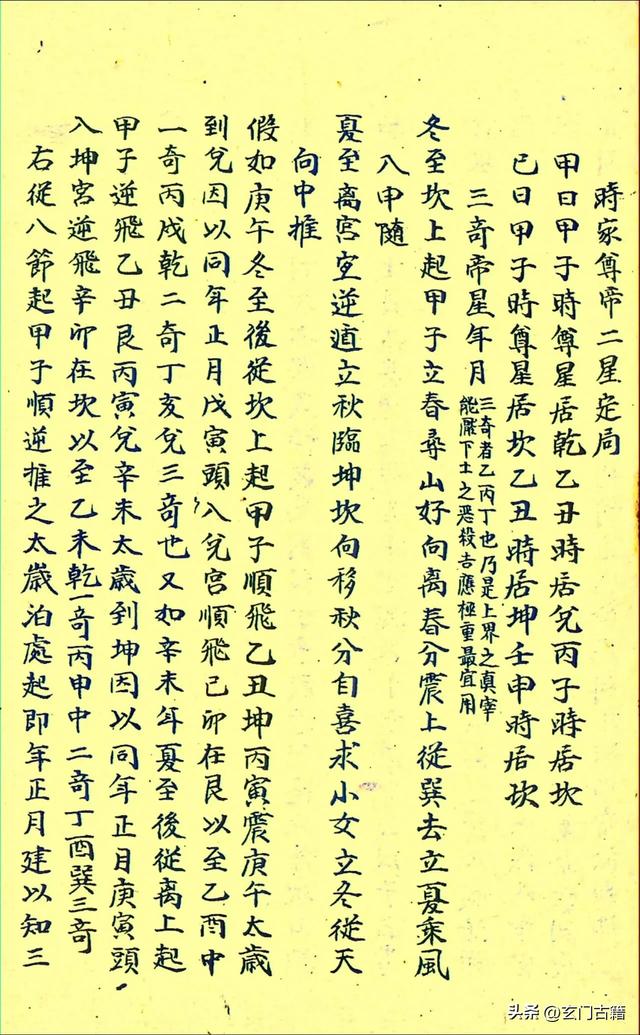 時家尊帝二星定局
甲日甲子時尊星居乾乙丑時居兌丙子時居坎
已日甲子時尊星居坎乙丑時居坤壬申時居坎
三奇帝星年月三奇者乙丙丁也乃是上界之真宰
能壓下土之惡殺吉應極重最宜用
冬至坎上起甲子立春尋山好向離春分震上從巽去立夏乘風
八甲隨
夏至離宮室逆道立秋臨坤坎向移秋分自喜求小女立冬從天
向中推
假如庚午冬至後從坎上起甲子順飛乙丑坤丙寅震庚午太歲
到兌因以同年正月戊寅頭入兌宮順飛己卯在艮以至乙酉中
一奇丙戌乾二奇丁亥兌三奇也又如辛未年夏至後從離上起
甲子逆飛乙丑艮丙寅兌辛未太歲到坤因以同年正月庚寅頭
入坤宮逆飛辛卯在坎以至乙未乾一奇丙申中二奇丁酉巽三奇
右從八節起甲子順逆推之太歲泊處起即年正月建以知三
头条@玄门古籍